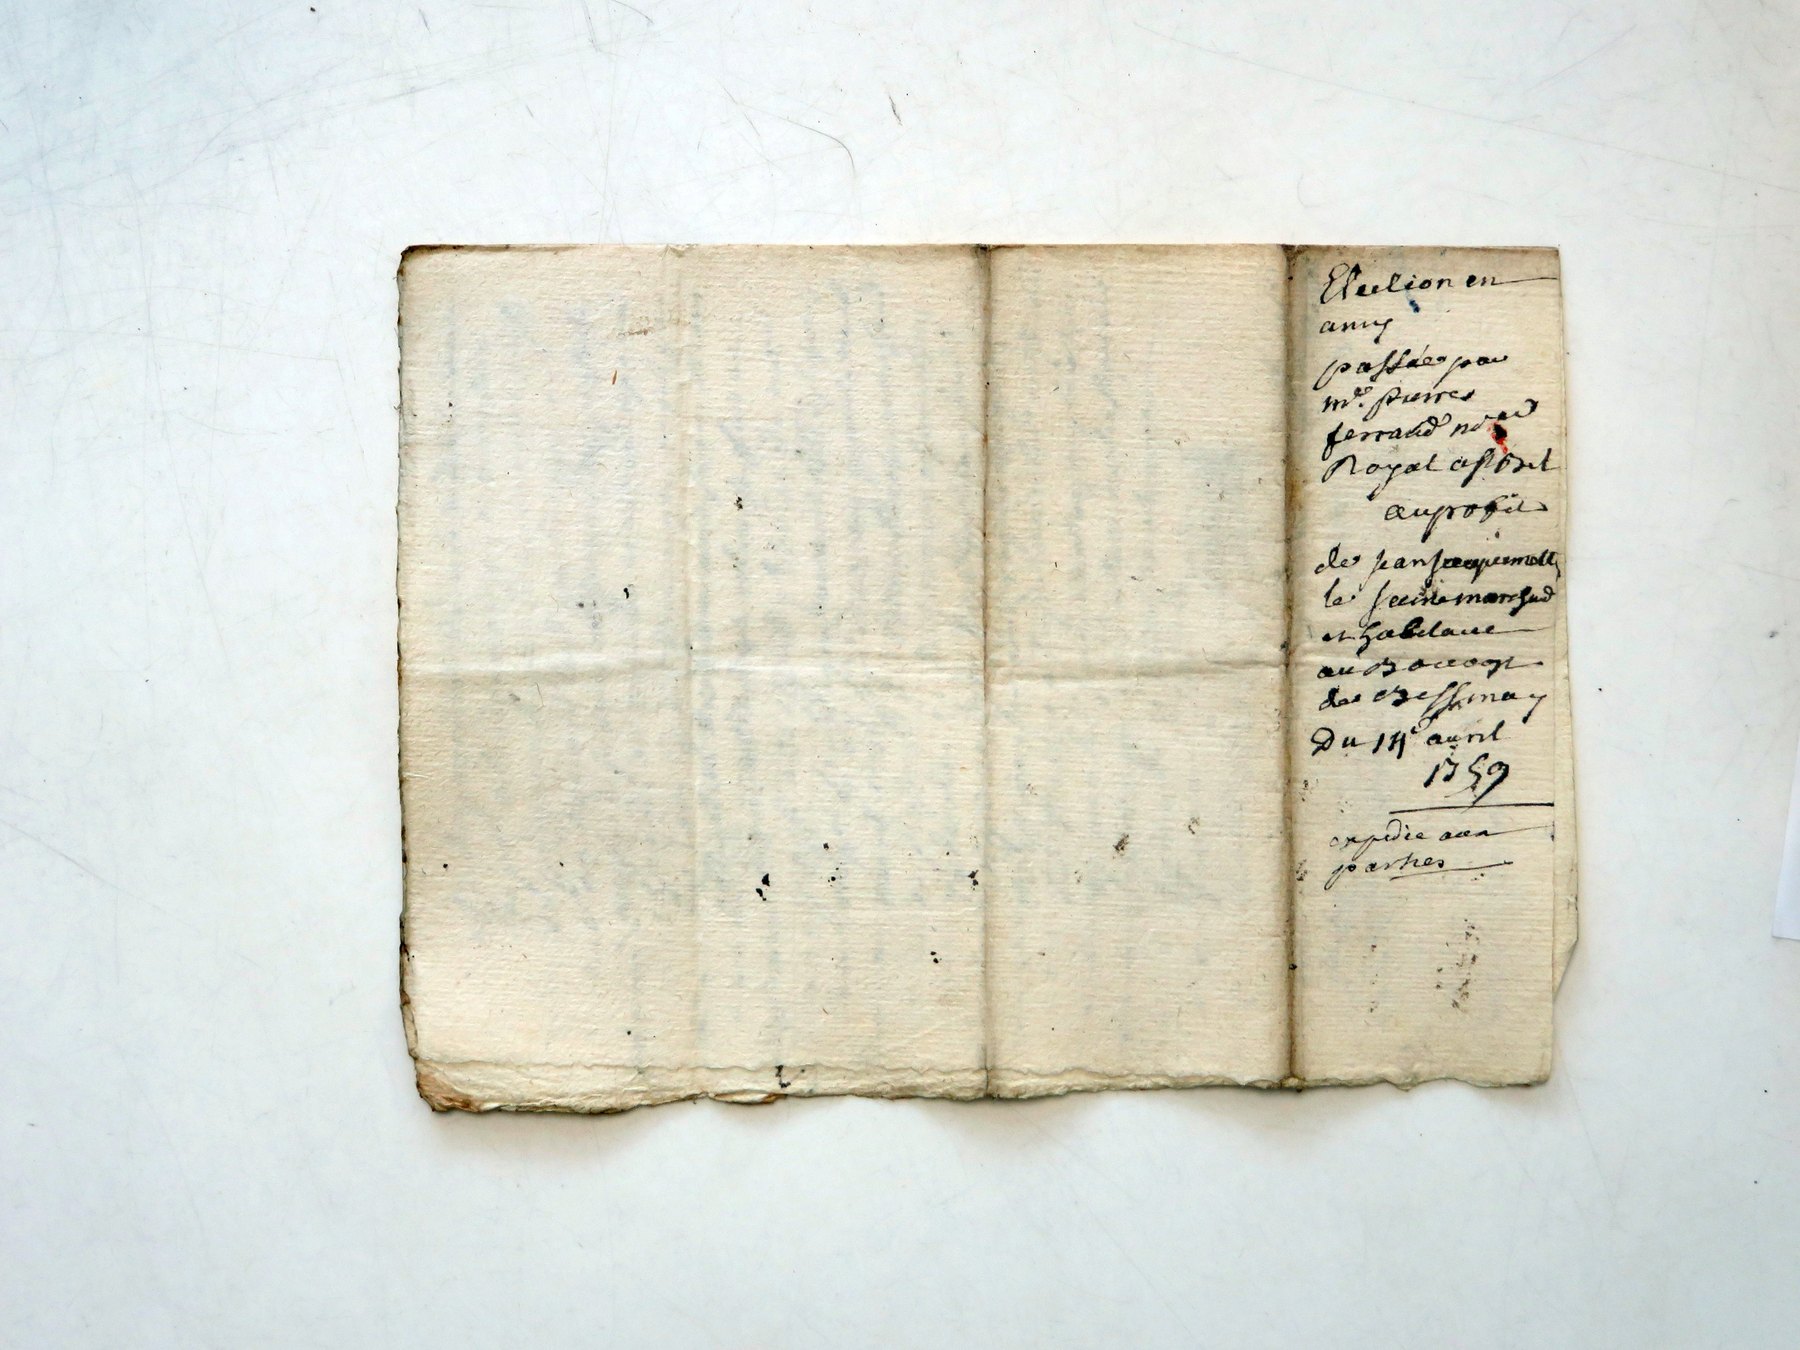 Election en
amy
passée par
me. pierre
ferrand nore
Royal a
au profit
de jean
le jeune marchand
et habitant
au Bourg
de Bessenay
Du 14e avril
1759
expedié aux
parties